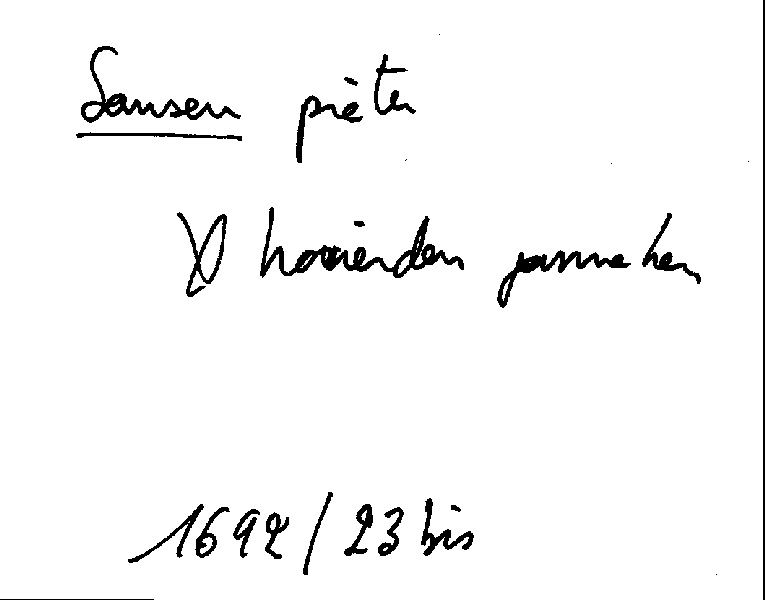 Sansen pieter
X hovierden janneken
1692 / 23 bis